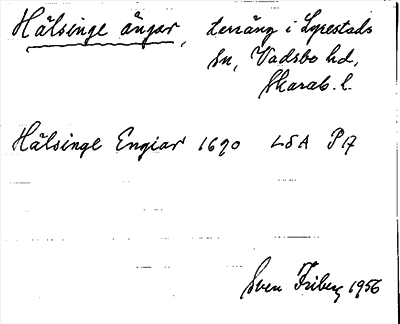 Hälsinge ängar, terräng i Lyrestads
sn, Vadsbo hd,
Skarab. l.
Hälsinge Engiar 1690 LSA P17
Sven Friberg 1956